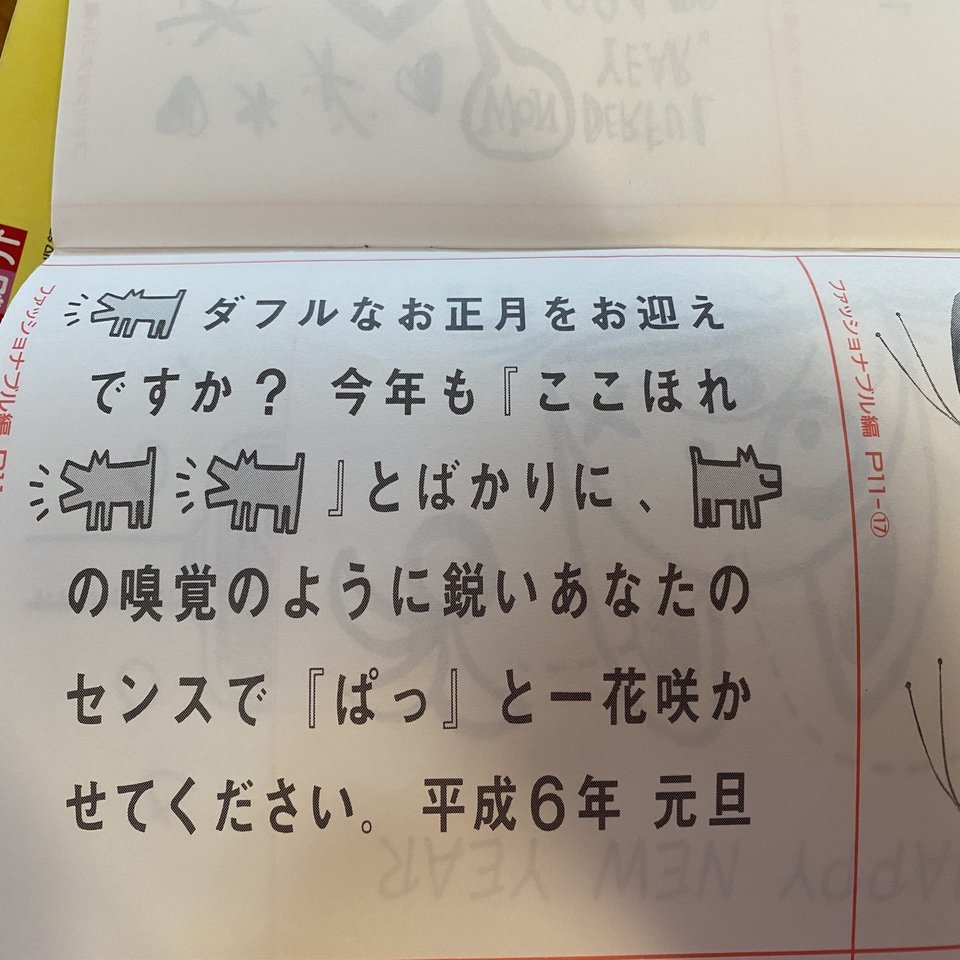 ダフルなお正月をお迎え
ですか？ 今年も『ここほれ
』とばかりに、
の嗅覚のように鋭いあなたの
センスで『ぱっ』と一花咲か
せてください。平成6年 元旦
ファッショナブル編 P11-⑰
ファッショナブル編
HAPPY NEW YEAR
YEAR
WON DERFUL